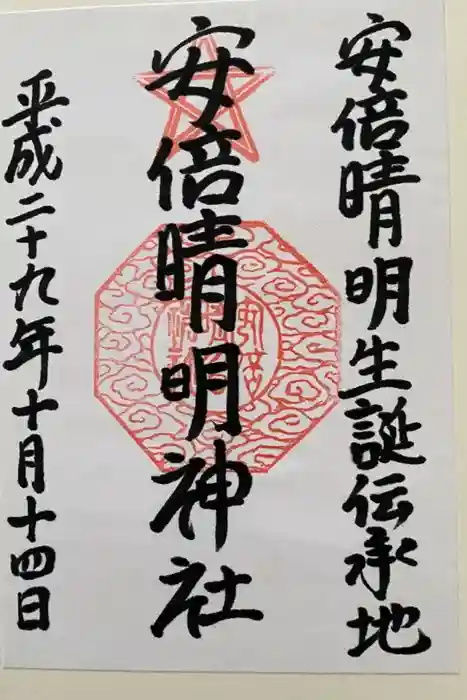 安倍晴明生誕伝承地
安倍晴明神社
平成二十九年十月十四日